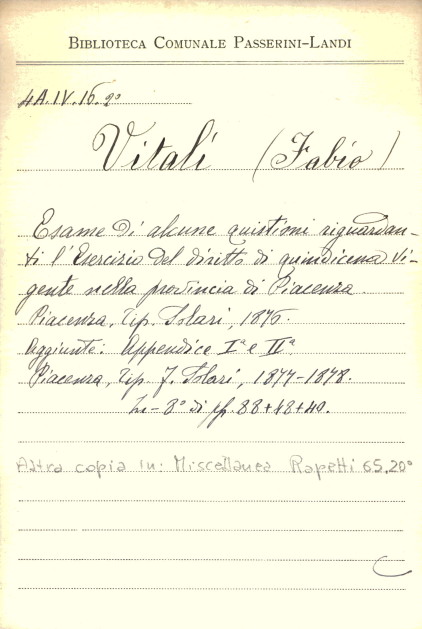 BIBLIOTECA COMUNALE PASSERINI-LANDI
4A.IV.16.2º
Vitali (Fabio)
Esame di alcune quistioni riguardan-
ti l'Esercizio del diritto di quindicena vi-
gente nella provincia di Piacenza.
Piacenza, Tip. Solari, 1876.
Aggiunte: Appendice Iª e IIª
Piacenza, tip. F. Solari, 1877-1878.
in-8º di pp. 88+48+40.
Altra copia in: Miscellanea Rapetti 65,20º